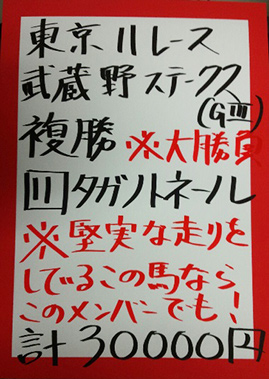 東京11レース
武蔵野ステークス
(GⅢ)
複勝 ※大勝負
11 タガノトネール
※堅実な走りを
しでるこの馬なら
このメンバーでも!
計30000円